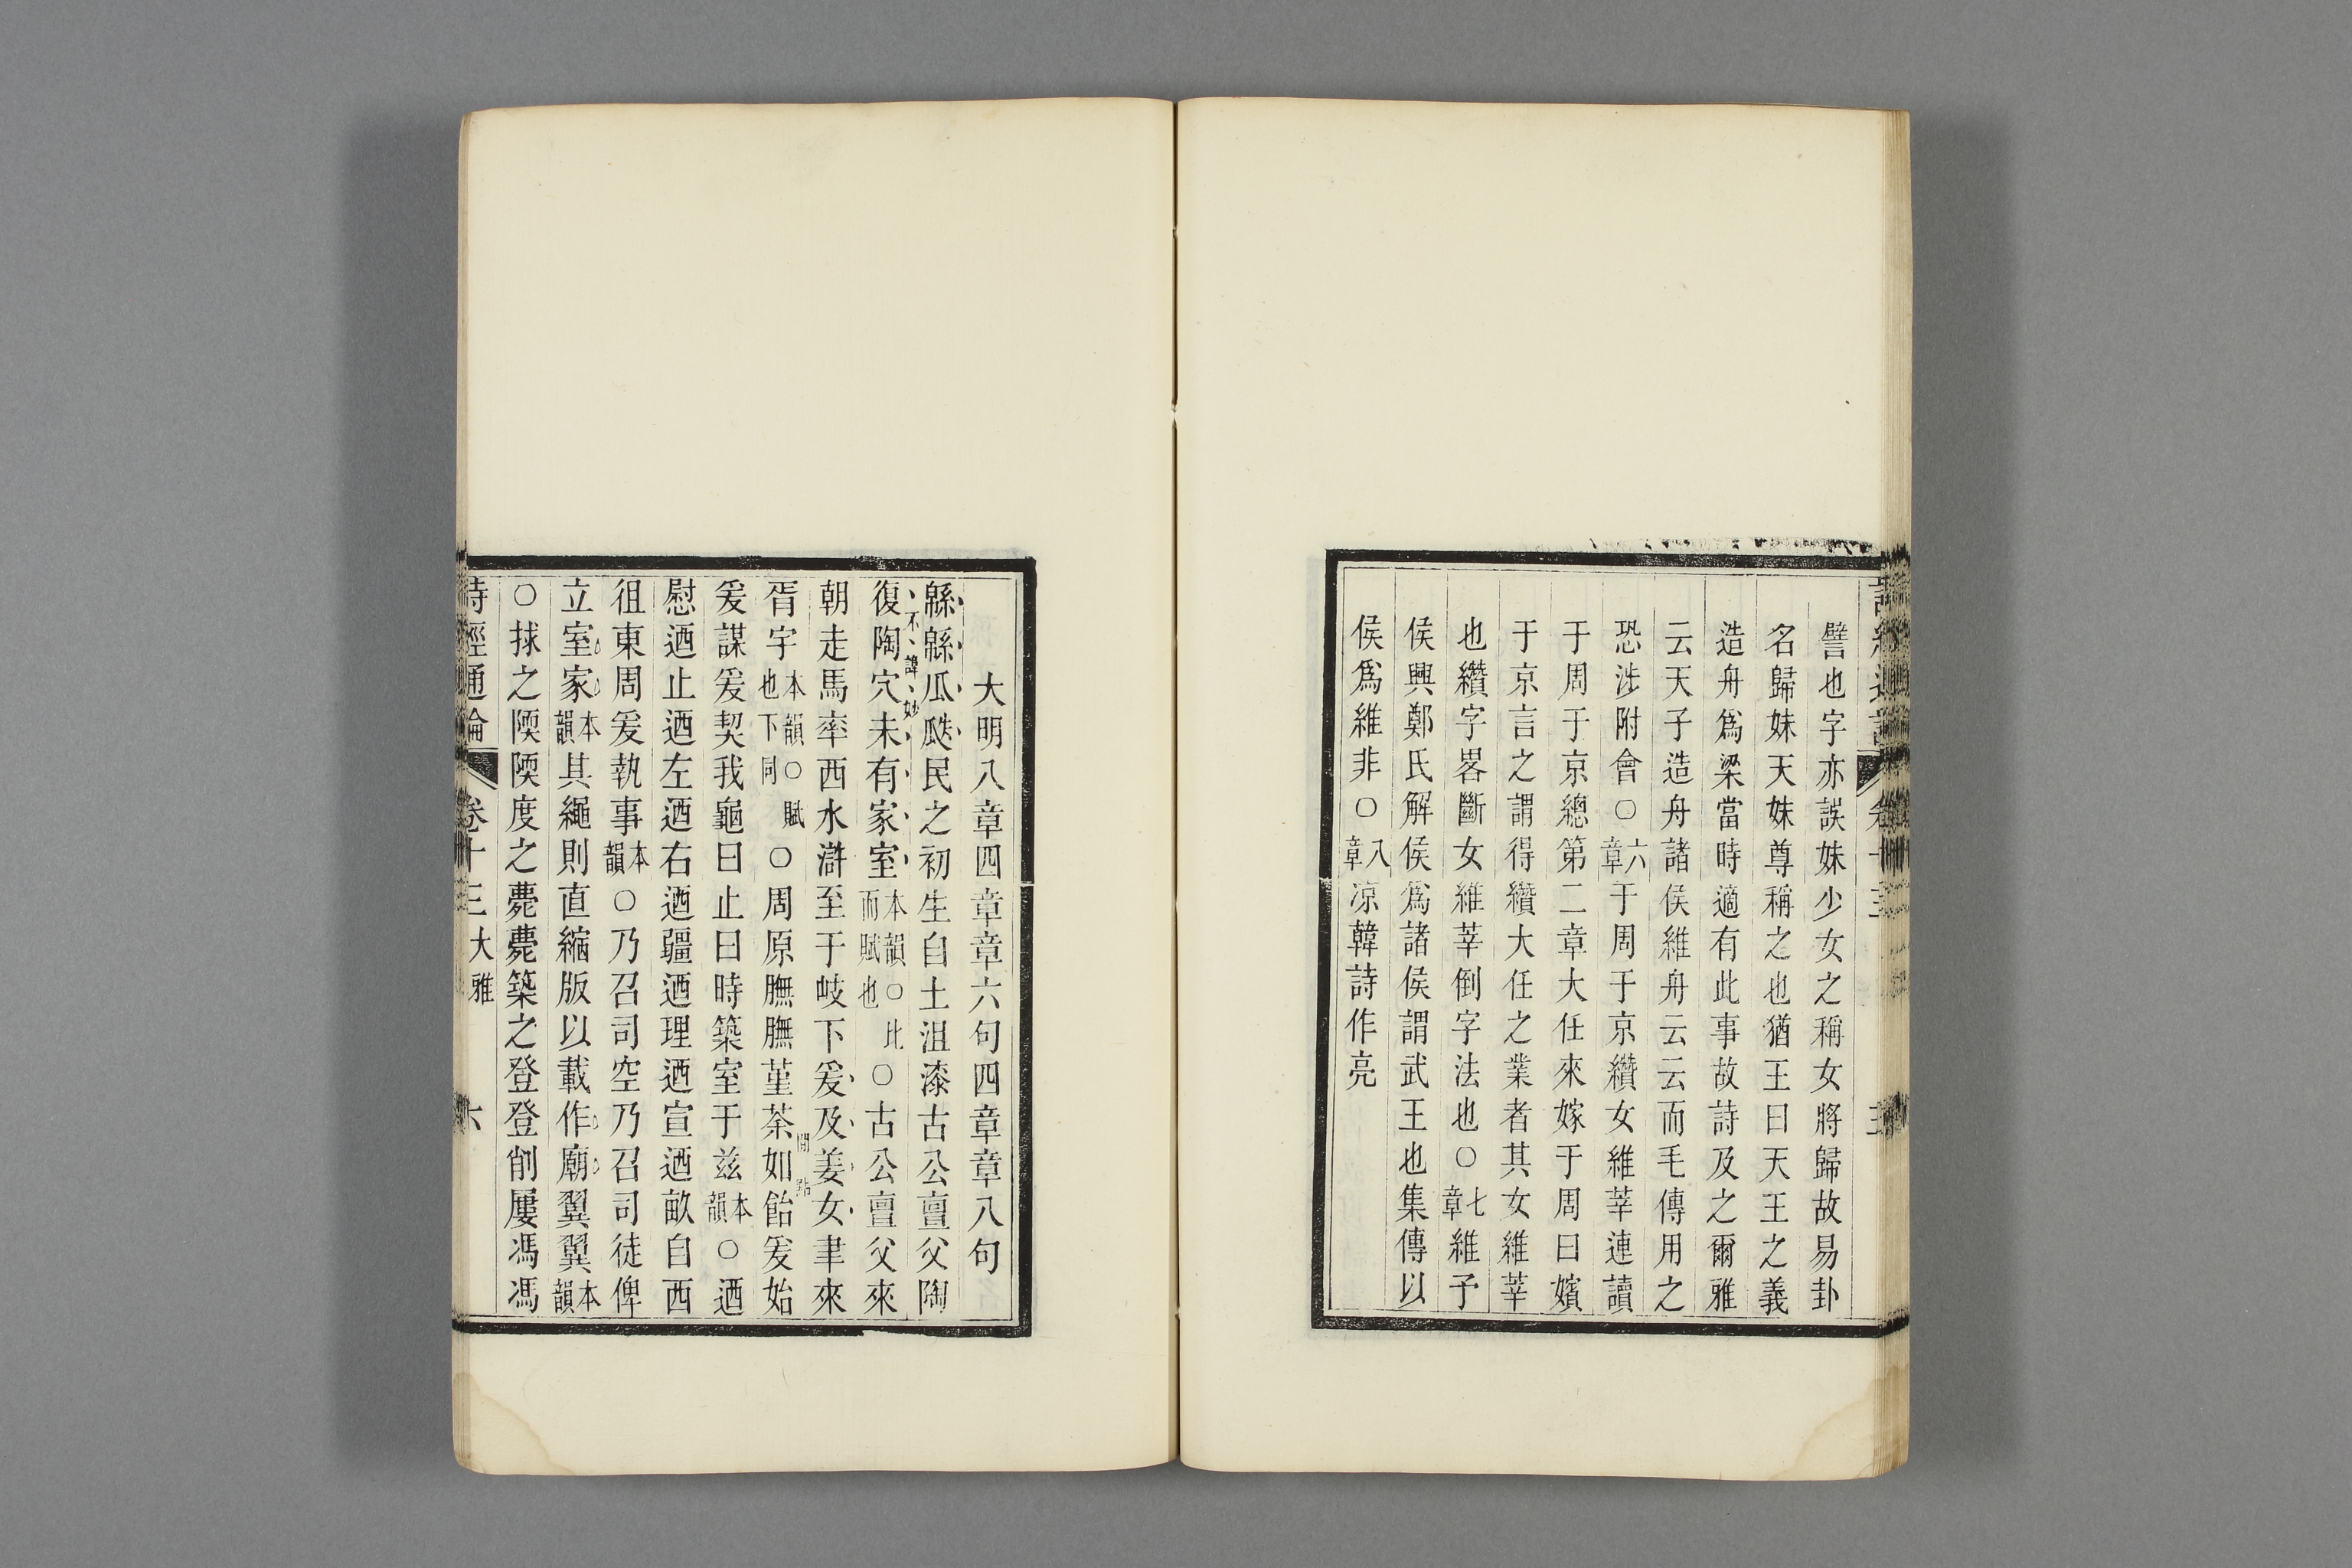 譬也字亦誤妹少女之稱女將歸故易卦
名歸妹天妹尊稱之也猶王曰天王之義
造舟爲梁當時適有此事故詩及之爾雅
云天子造舟諸侯維舟云云而毛傳用之
恐涉附會〇六章于周于京纘女維莘連讀
于周于京總第二章大任來嫁于周曰嬪
于京言之謂得纘大任之業者其女維莘
也纘字畧斷女維莘倒字法也〇七章維予
侯興鄭氏解侯爲諸侯謂武王也集傳以
侯爲維非〇八章凉韓詩作亮
大明八章四章章六句四章章八句
緜緜瓜瓞民之初生自土沮漆古公亶父陶
不諱妙
復陶穴未有家室本韻〇比而賦也〇古公亶父來
朝走馬率西水滸至于岐下爰及姜女聿來
胥宇本韻〇賦也下同〇周原膴膴堇荼如飴爰始
閒
爰謀爰契我龜曰止曰時築室于茲本韻〇迺
慰迺止迺左迺右迺疆迺理迺宣迺畝自西
徂東周爰執事本韻〇乃召司空乃召司徒俾
立室家本韻其繩則直縮版以載作廟翼翼本韻
〇捄之陾陾度之薨薨築之登登削屢馮馮
詩經通論 卷十三 大雅 六